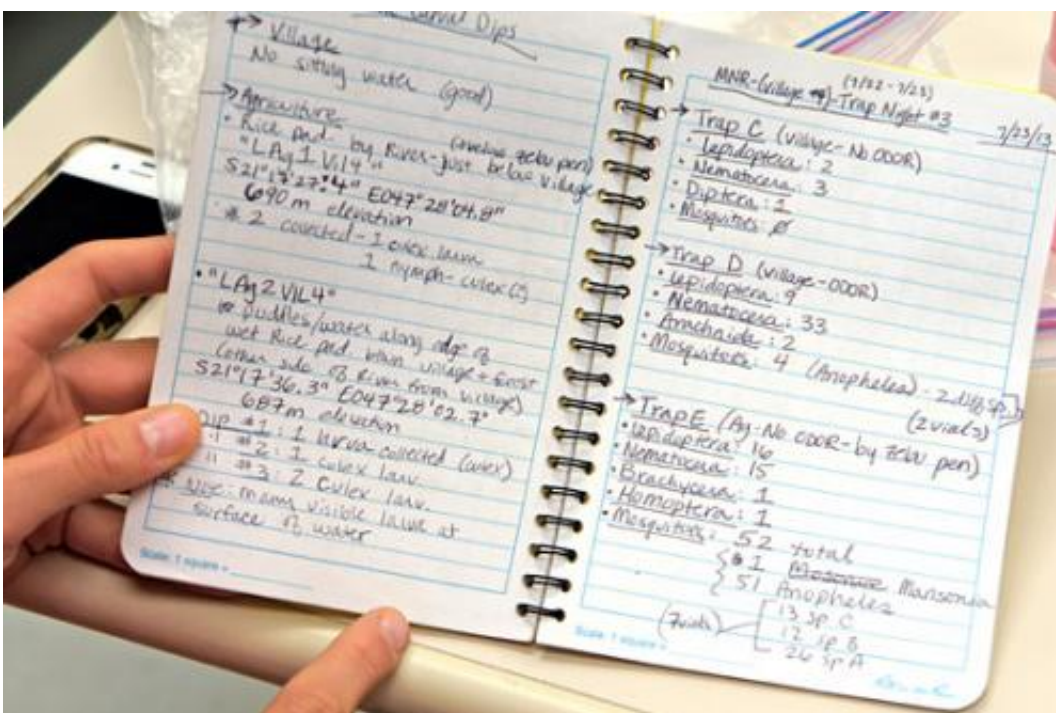 Larval Dips
→ Village
No sitting water (good)
→ Agriculture
• Rice pad. by River - just below village (below zebu pen)
"LAg 1 Vil4"
S21°17'27.4" E047°28'04.8"
690 m elevation
* 2 collected - 1 culex larva
1 nymph - culex (?)
• "LAg 2 VIL4"
Puddles/water along edge of
wet Rice pad. btwn village + forest
(other side of River from village)
S21°17'36.3" E047°28'02.7"
687m elevation
Dip #1: 1 larva collected (culex)
" #2: 1 culex larv.
" #3: 2 culex larv.
many visible larva at
surface of water
Scale: 1 square =
(7/22 - 7/23)
MNR-(village 4)-Trap Night #3
7/23/13
→ Trap C (village - No ODOR)
• Lepidoptera: 2
• Nematocera: 3
• Diptera: 1
• Mosquitoes: ø
→ Trap D (village - ODOR)
• Lepidoptera: 9
• Nematocera: 33
• Arachnida: 2
• Mosquitoes: 4 (Anopheles) - 2 diff sp.
(2 vials)
→ Trap E (Ag - No ODOR - by zebu pen)
• Lepidoptera: 16
• Nematocera: 15
• Brachycera: 1
• Homoptera: 1
• Mosquitoes: 52 total
1 Mansonia
51 Anopheles
(7 vials)
13 sp. C
12 sp B
26 sp A
Scale: 1 square =